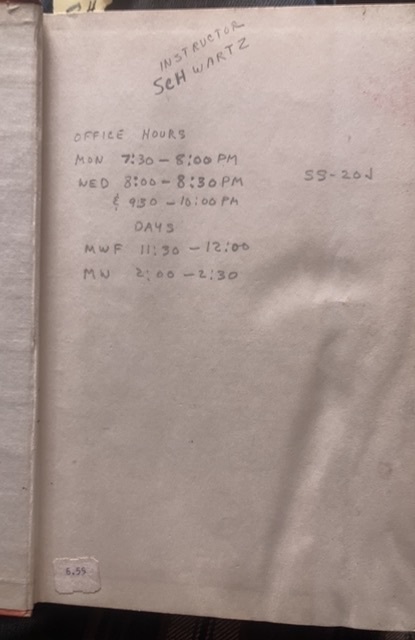 INSTRUCTOR
SCHWARTZ
OFFICE HOURS
MON 7:30 - 8:00 PM
WED 8:00 - 8:30 PM SS-20J
& 930 - 10:00 PM
DAYS
MWF 11:30 - 12:00
MW 2:00 - 2:30
6.55